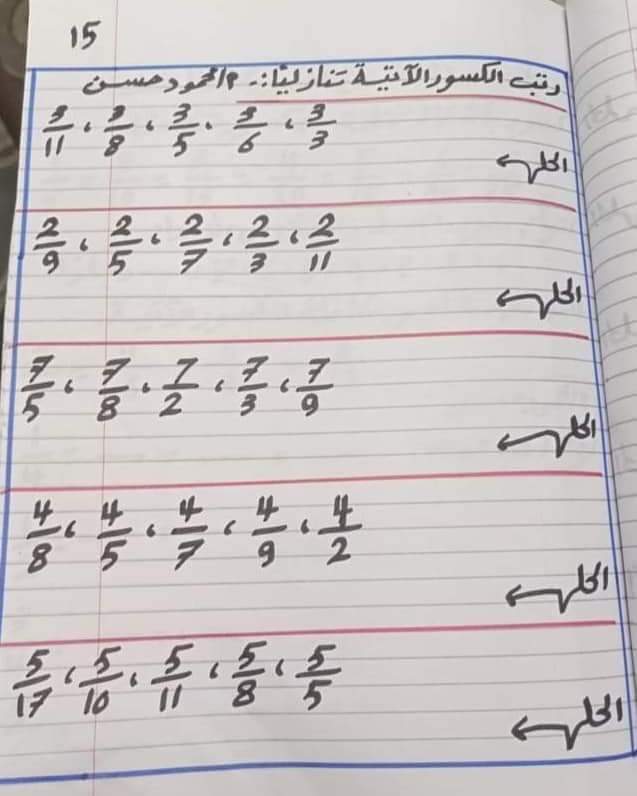 15
رتب الكسور الآتية تنازليًا:- م/محمود حسن
3/11 ، 3/8 ، 3/5 ، 3/6 ، 3/3
الحل
2/9 ، 2/5 ، 2/7 ، 2/3 ، 2/11
الحل
7/5 ، 7/8 ، 7/2 ، 7/3 ، 7/9
الحل
4/8 ، 4/5 ، 4/7 ، 4/9 ، 4/2
الحل
5/17 ، 5/10 ، 5/11 ، 5/8 ، 5/5
الحل